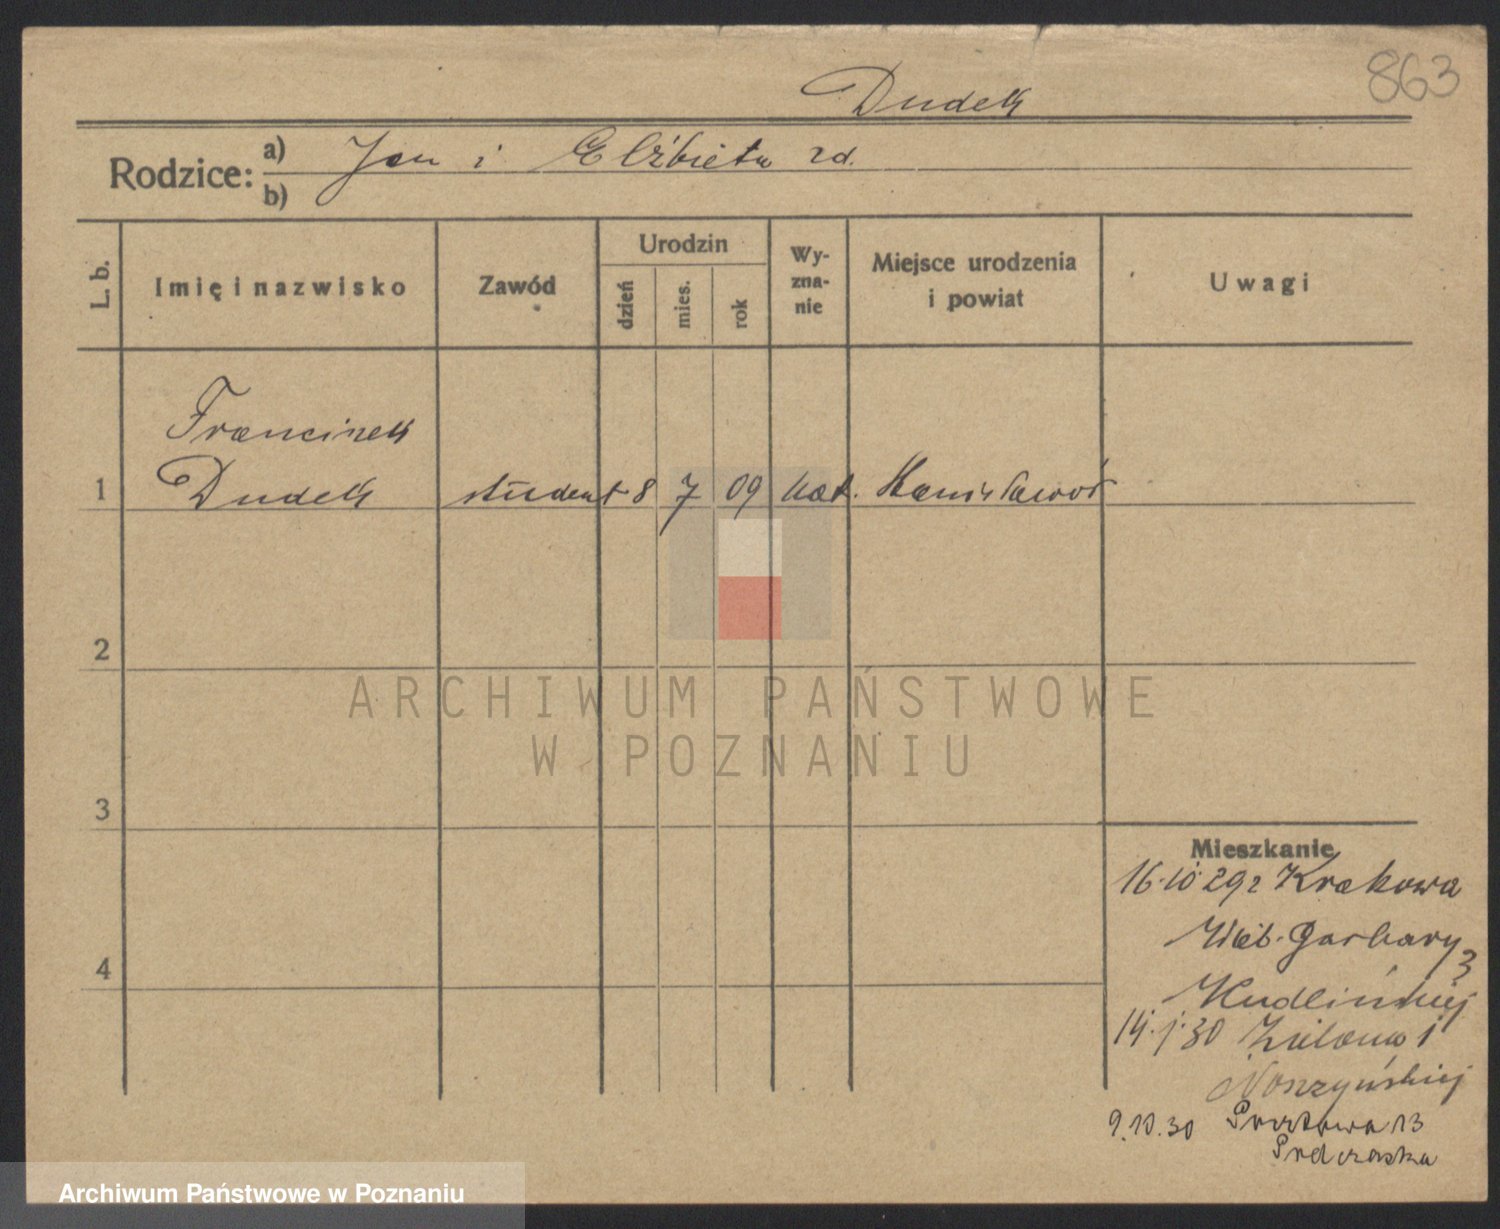 863
Dudek
Rodzice: a) Jan i Elżbieta zd.
b)
L. b. Imię i nazwisko Zawód Urodzin dzień mies. rok Wy-zna-nie Miejsce urodzenia i powiat Uwagi
Franciszek
1 Dudek student 8 7 09 kat. Stanisławów
2
3
4
Mieszkanie
16.10.29 z Krakowa
Garbary 3
14.1.30 Zielona 1
9.10.30 Pocztowa 13
ARCHIWUM PAŃSTWOWE
W POZNANIU
Archiwum Państwowe w Poznaniu